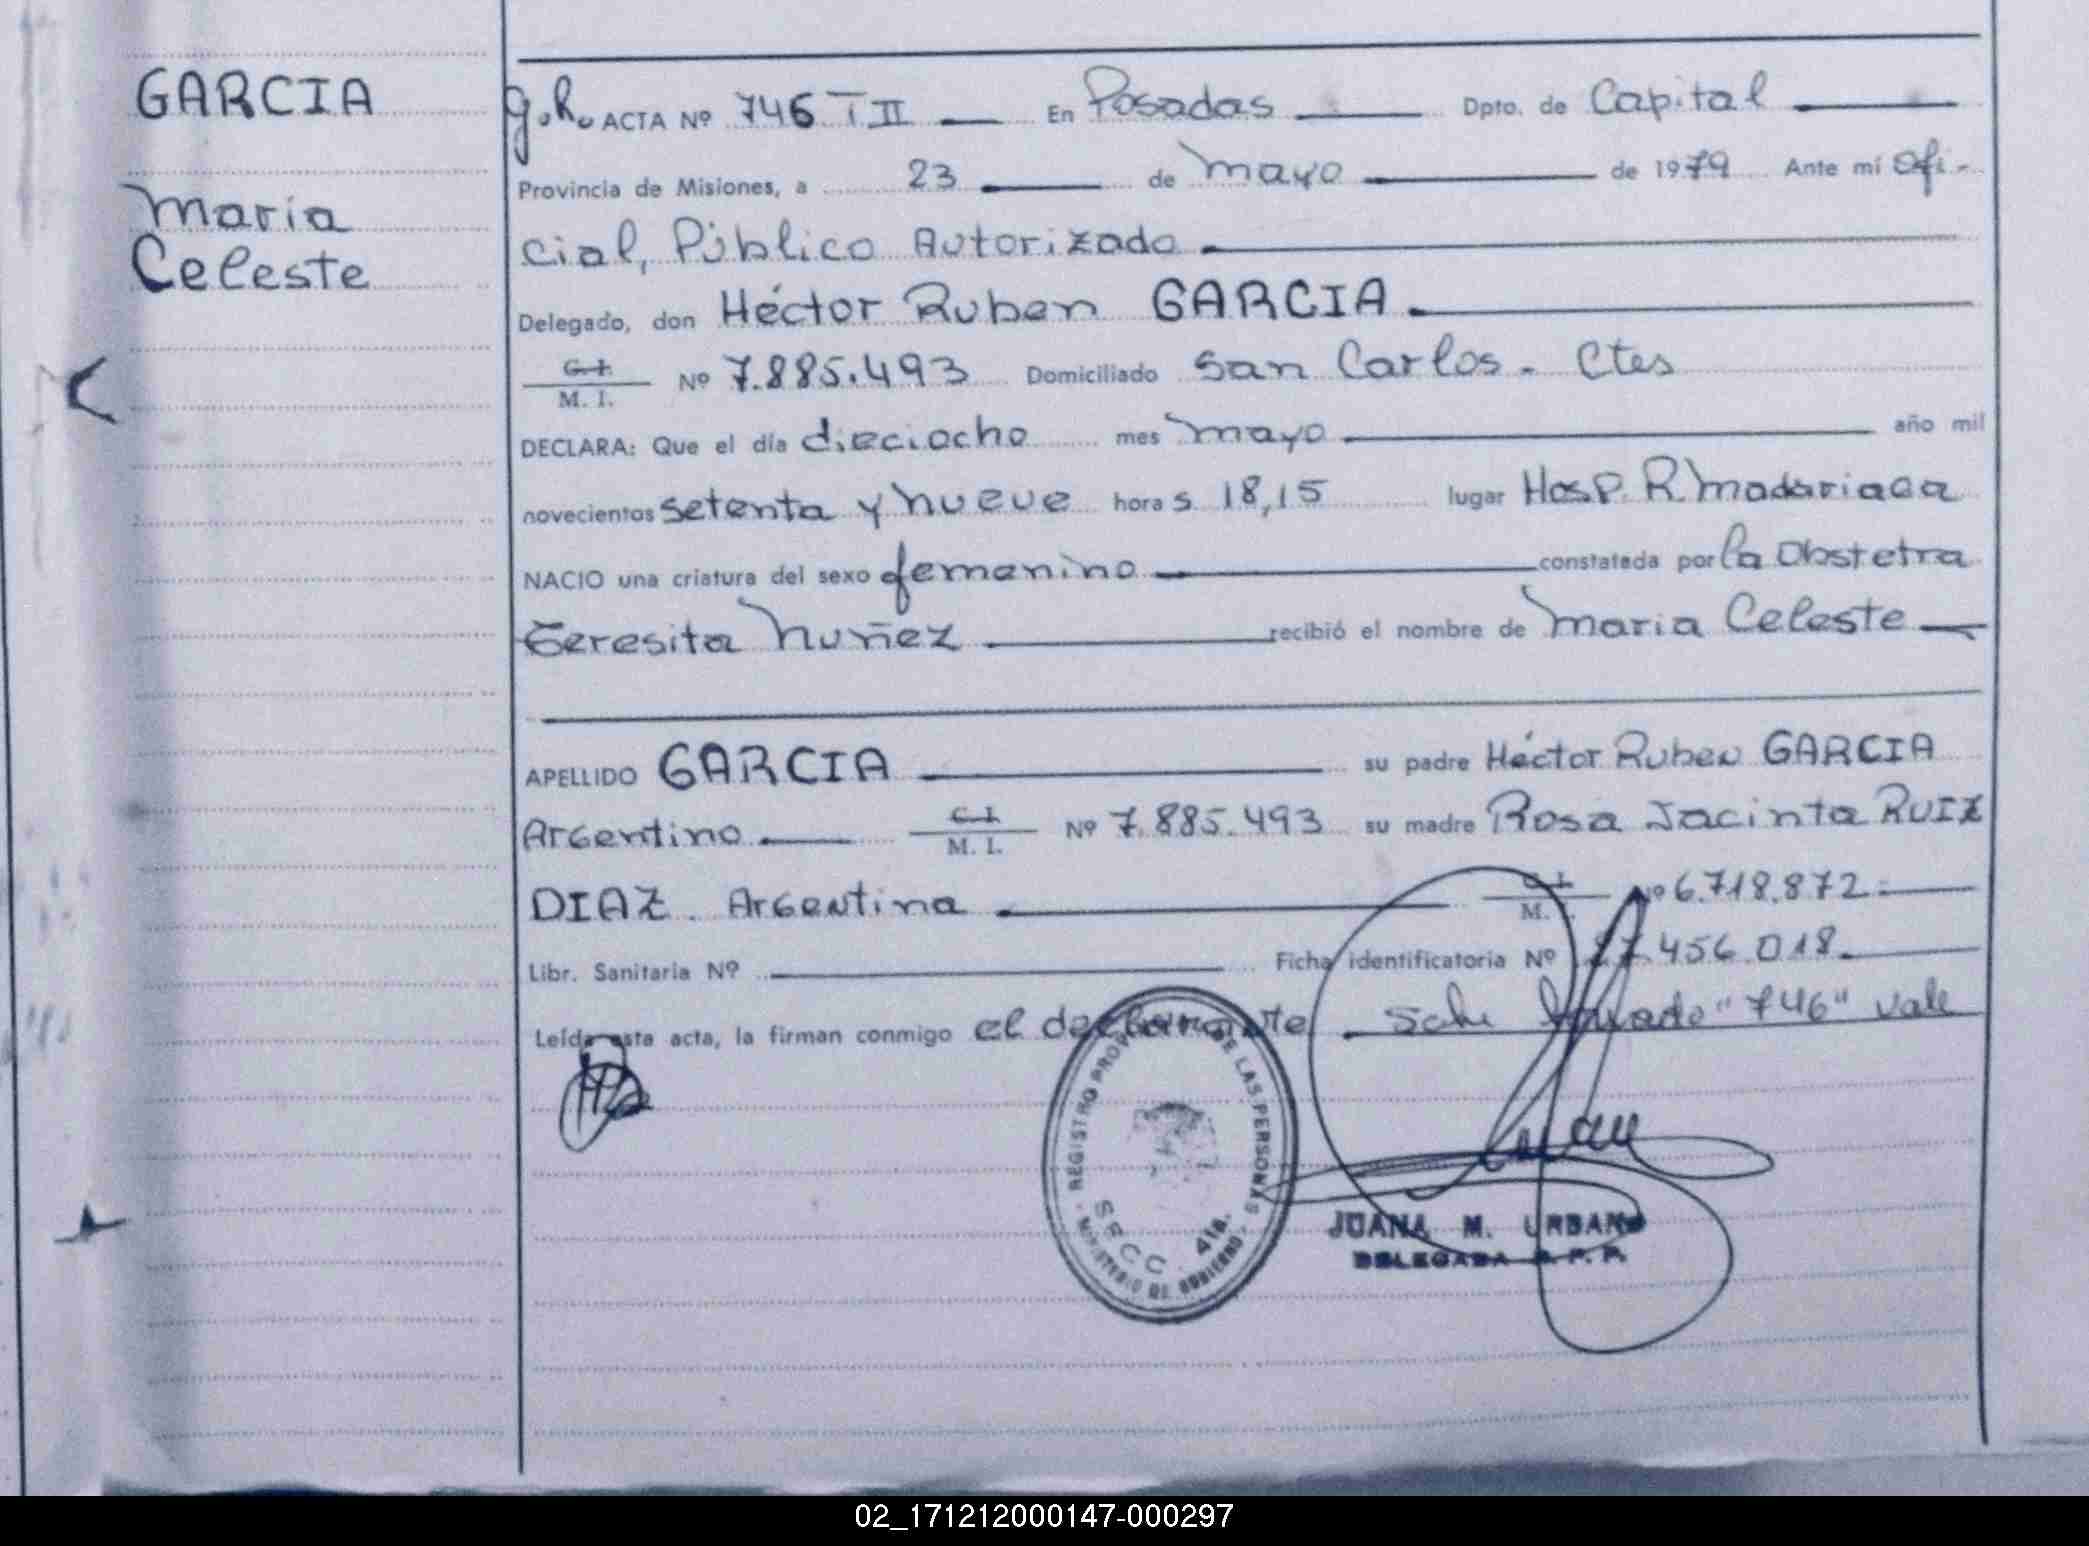 GARCIA
Maria
Celeste
g.h. ACTA Nº 746 T II En Posadas Dpto. de Capital
Provincia de Misiones, a 23 de mayo de 1979 Ante mí Ofi-
cial, Público Autorizado
Delegado, don Héctor Ruben GARCIA
C. I. M. I. Nº 7.885.493 Domiciliado San Carlos - Ctes
DECLARA: Que el día dieciocho mes mayo año mil
novecientos setenta y nueve horas 18,15 lugar Hosp. R. Madariaga
NACIO una criatura del sexo femenino constatada por la Obstetra
Teresita Nuñez recibió el nombre de Maria Celeste
APELLIDO GARCIA su padre Héctor Ruben GARCIA
Argentino C. I. M. I. Nº 7.885.493 su madre Rosa Jacinta RUIZ
DIAZ. Argentina C. I. M. I. Nº 6.718.872.-
Libr. Sanitaria Nº Ficha identificatoria Nº 27.456.018.
Leída esta acta, la firman conmigo el declarante "746" vale
REGISTRO DE LAS PERSONAS
SECC. 4ta.
MINISTERIO DE GOBIERNO
JUANA M. URBANO
DELEGADA R. P. P.
02_171212000147-000297